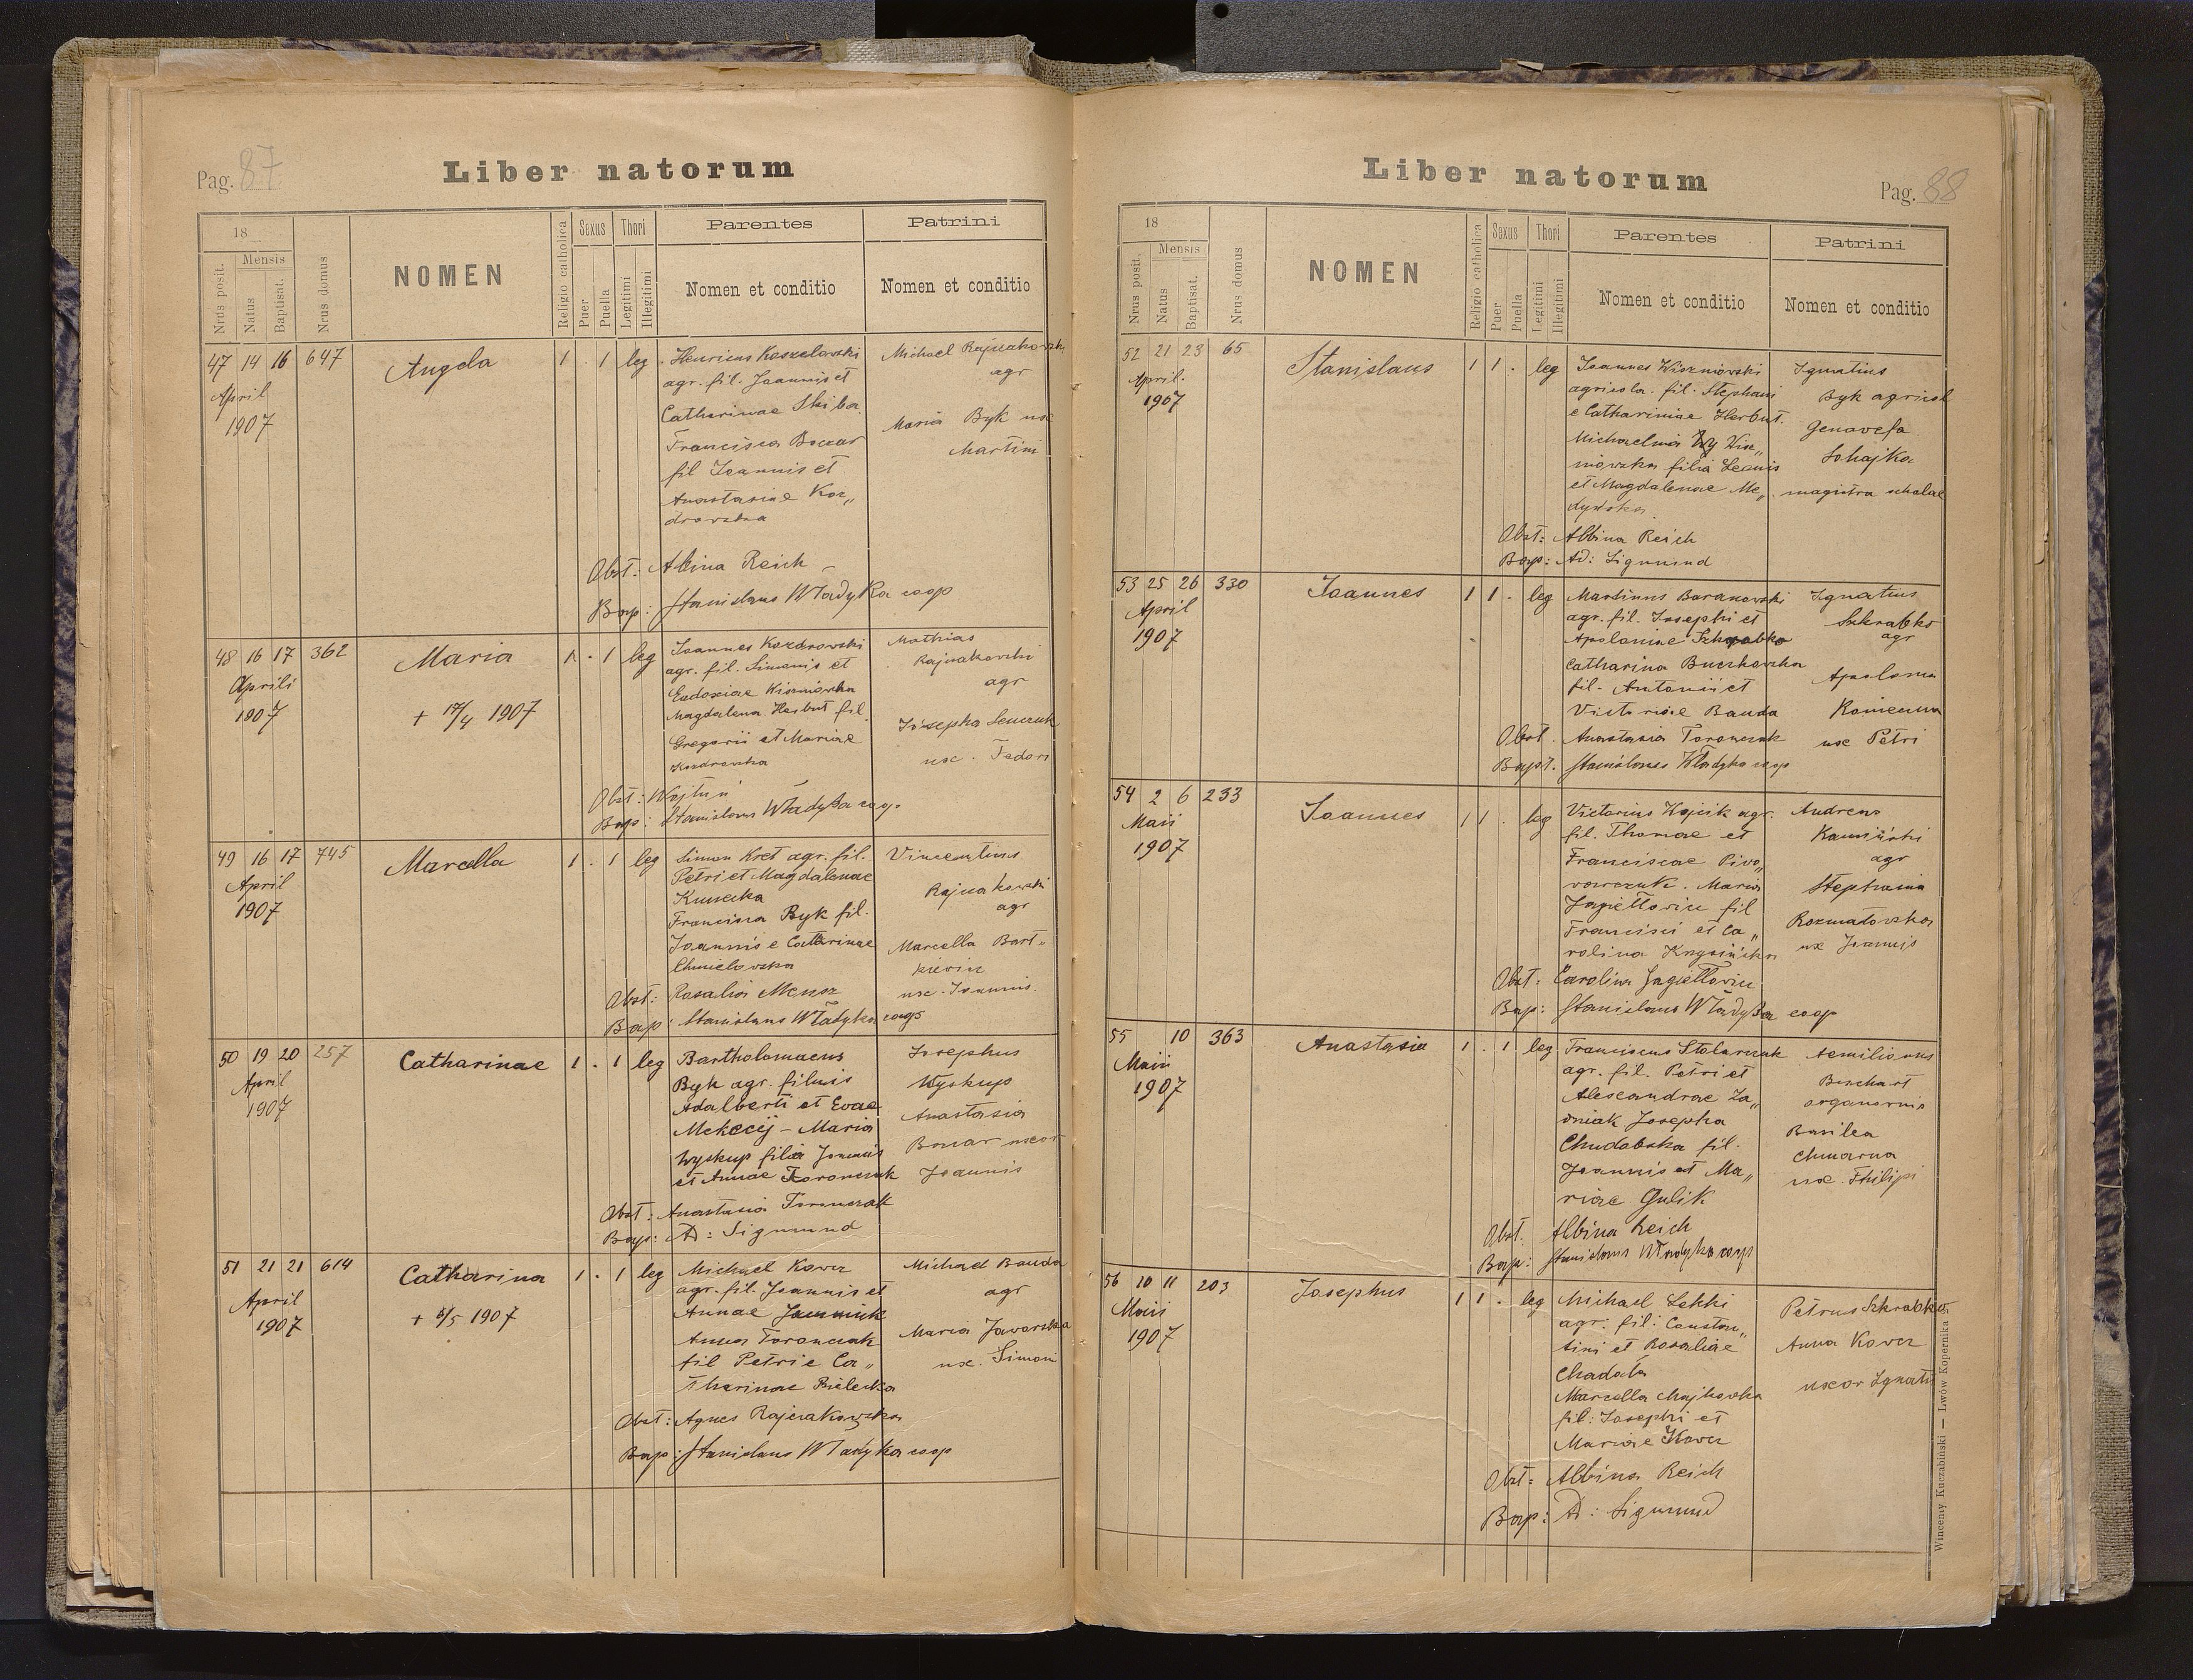 Pag. 87
Liber natorum
18
Nrus posit.
Mensis
Natus
Baptisat.
Nrus domus
NOMEN
Religio catholica
Sexus
Puer
Puella
Thori
Legitimi
Illegitimi
Parentes
Nomen et conditio
Patrini
Nomen et conditio
47 14 16 647 Angela 1 . 1 leg
April
1907
Henricus Koszelowski
agr. fil. Joannis et
Catharinae Skiba
Francisca Bocear
fil Joannis et
Anastasiae Koz„
drowska
Michael Rajnakowski
agr
Maria Byk ux
Martini
Obst: Albina Reich
Bap: Stanislaus Władyka coop
48 16 17 362 Maria 1 . 1 leg
Aprili
1907
+ 17/4 1907
Joannes Kozdrowski
agr. fil. Simonis et
Eudoxiae Wiszniowska
Magdalena Herbut fil.
Gregorii et Mariae
Kozdrowska
Mathias
Rajnakowski
agr
Josepha Senczuk
ux. Fedori
Obst: Wojtun
Bap: Stanislaus Władyka coop.
49 16 17 745 Marcella 1 . 1 leg
April
1907
Simon Kret agr. fil.
Petri et Magdalenae
Kunecka
Francisca Byk fil.
Joannis e Catharinae
Chmielowska
Vincentius
Rajnakowski
agr
Marcella Bart„
kiewicz
ux. Joannis.
Obst: Rosalia Mensz
Bap: Stanislaus Władyka coop
50 19 20 257 Catharinae 1 . 1 leg
April
1907
Bartholomaeus
Byk agr. filius
Adalberti et Evae
Mekecij - Maria
Wyskup filia Joannis
et Annae Toronczuk
Josephus
Wyskup
Anastasia
Bocear uxor
Joannis
Obst: Anastasia Toronczuk
Bap: A: Sigmund
51 21 21 614 Catharina 1 . 1 leg
April
1907
+ 6/5 1907
Michael Kowcz
agr. fil. Joannis et
Annae Jacmnik
Anna Toronczak
fil Petri e Ca„
tharinae Bielecka
Michael Bauda
agr
Maria Jaworska
ux. Simoni
Obst: Agnes Rajnakowska
Bap: Stanislaus Władyka coop
Liber natorum
Pag. 88
18
Nrus posit.
Mensis
Natus
Baptisat.
Nrus domus
NOMEN
Religio catholica
Sexus
Puer
Puella
Thori
Legitimi
Illegitimi
Parentes
Nomen et conditio
Patrini
Nomen et conditio
52 21 23 65 Stanislaus 1 1 . leg
April.
1907
Joannes Wiszniowski
agricola. fil. Stephani
e Catharinae Herbut.
Michaelina Wisz„
niowska filia Leonis
et Magdalenae Me„
dynska.
Ignatius
Byk agricol
Genovefa
Sohajka
magistra scholae
Obst: Albina Reich
Bap: Ad: Sigmund
53 25 26 330 Joannes 1 1 . leg
April
1907
Martinus Baranowski
agr. fil. Josephi et
Apoloniae Szkrabko
Catharina Buczkowska
fil. Antonii et
Victoriae Bauda
Ignatius
Szkrabko
agr
Apolonia
Kamienna
ux Petri
Obst. Anastasia Toronczuk
Bapt. Stanislaus Władyka coop
54 2 6 233 Joannes 1 1 . leg
Maii
1907
Victorius Wojcik agr.
fil. Thomae et
Franciscae Piwo„
warczuk. Maria
Jagiellowicz fil
Francisci et Ca„
rolina Krysińska
Andreas
Kamiński
agr
Stephania
Rozmatowska
ux Joannis
Obst: Carolina Jagiellowicz
Bap: Stanislaus Władyka coop
55 10 363 Anastasia 1 . 1 leg
Maii
1907
Franciscus Stolarczuk
agr. fil. Petri et
Alexandrae Za„
dniak Josepha
Chudobska fil.
Joannis et Ma„
riae Gulik
Aemilianus
Burchart
organarius
Basilea
Chmarna
ux. Philipi
Obst. Albina Reich
Bap: Stanislaus Władyka coop
56 10 11 203 Josephus 1 1 . leg
Maii
1907
Michael Lekki
agr. fil: Constan„
tini et Rosaliae
Chadala
Marcella Majkowska
fil: Josephi et
Mariae Kowcz
Petrus Szkrabko
Anna Kowcz
uxor Ignati
Obst: Albina Reich
Bap: A: Sigmund
Wincenty Kuczabiński — Lwów Kopernika